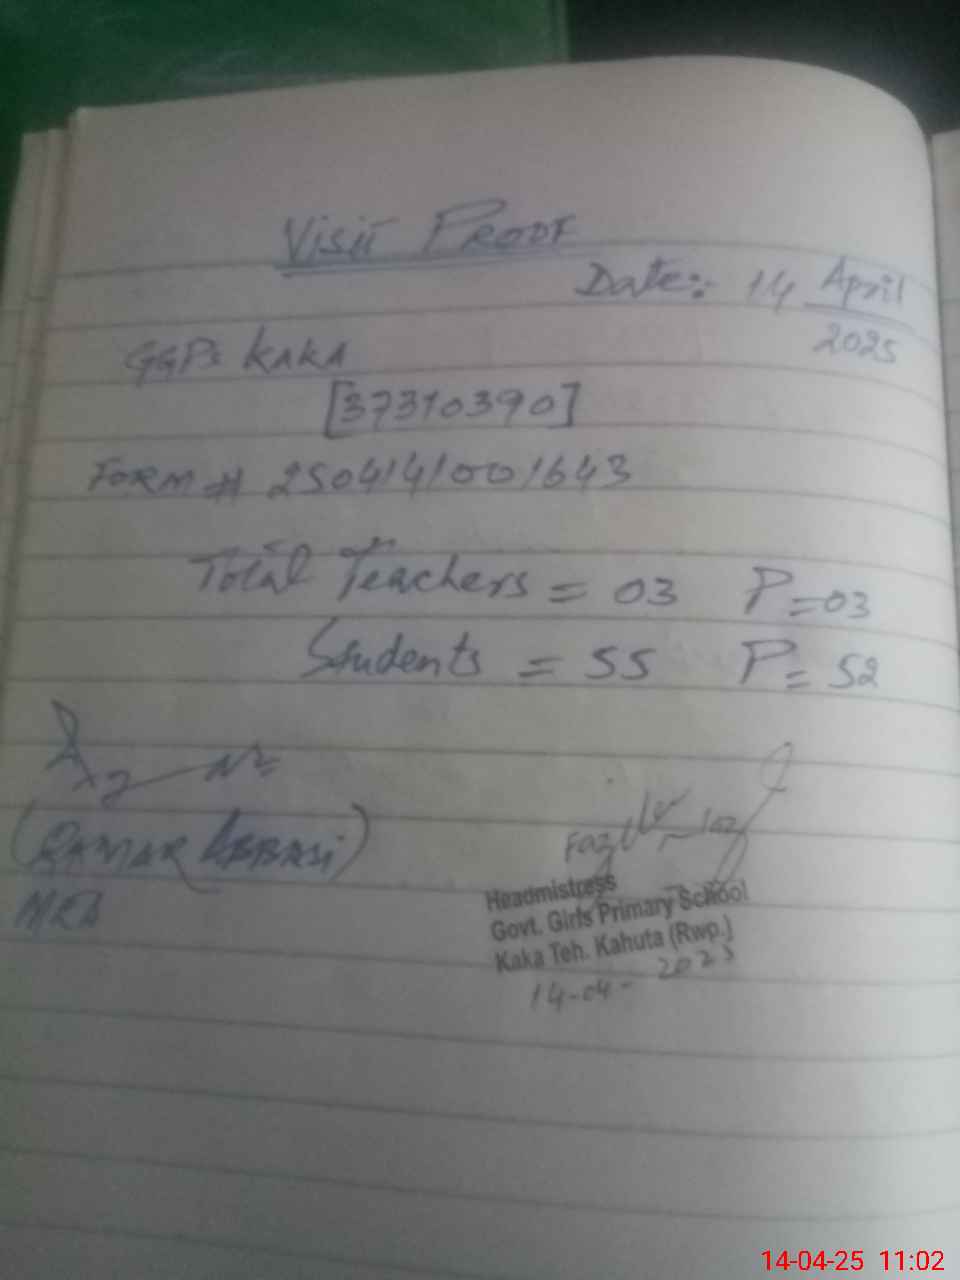 Visit PROOF
Date:- 14 April
2025
GGPS KAKA
[37310390]
FORM # 250414/001643
Total Teachers = 03 P = 03
Students = 55 P = 52
(QAMAR ABBASI)
MEA
Headmistress
Govt. Girls Primary School
Kaka Teh. Kahuta (Rwp.)
14-04-2025
14-04-25 11:02